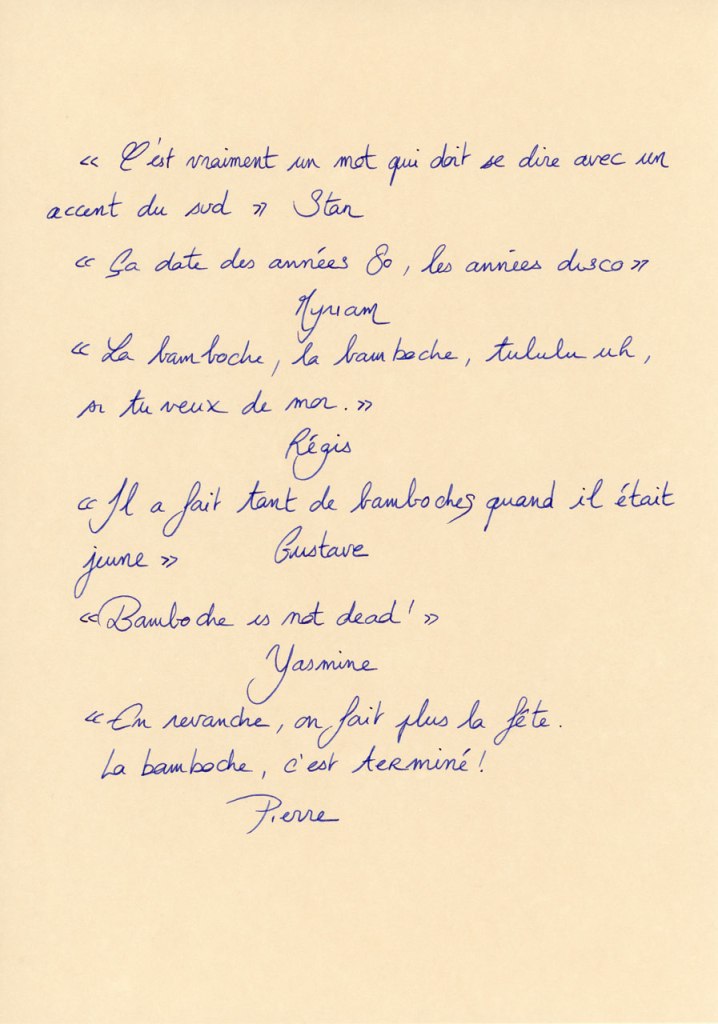 « C'est vraiment un mot qui doit se dire avec un
accent du sud » Stan
« Ça date des années 80, les années disco »
Myriam
« La bamboche, la bamboche, tululu uh,
si tu veux de moi. »
Régis
« Il a fait tant de bamboches quand il était
jeune » Gustave
« Bamboche is not dead! »
Yasmine
« En revanche, on fait plus la fête.
La bamboche, c'est terminé!
Pierre